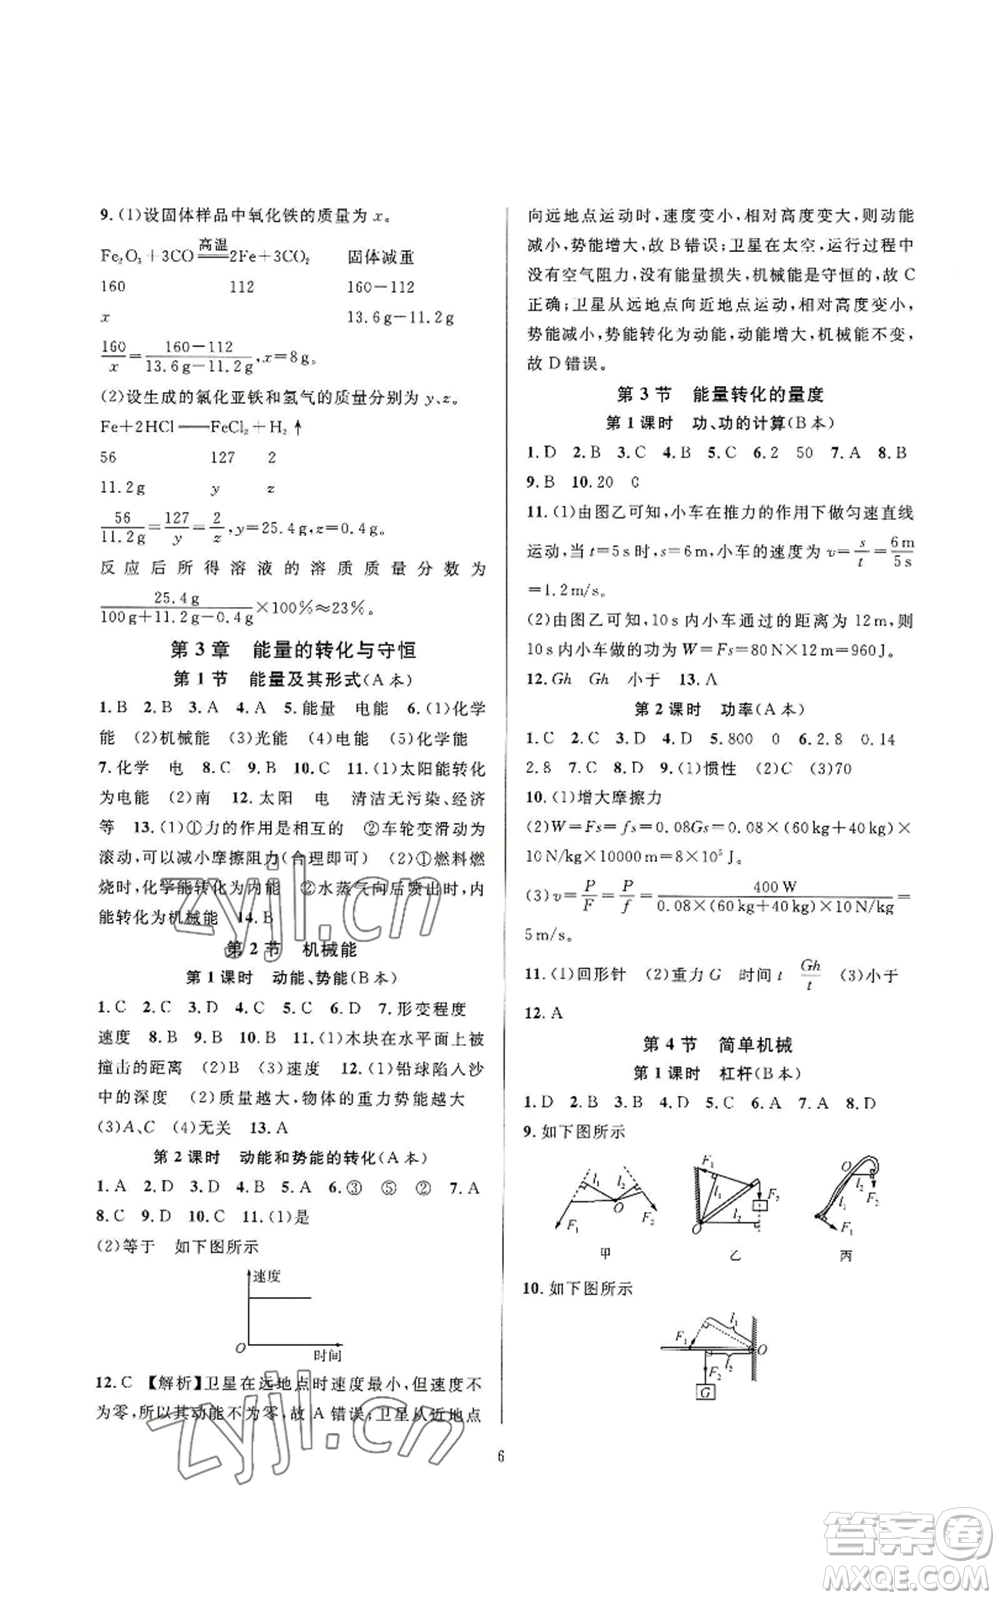 9. (1)设固体样品中氧化铁的质量为 x。
Fe₂O₃+3CO=高温=2Fe+3CO₂ 固体减重
160 112 160-112
x 13.6g-11.2g
160/x=(160-112)/(13.6g-11.2g),x=8g。
(2)设生成的氯化亚铁和氢气的质量分别为 y、z。
Fe+2HCl——FeCl₂+H₂↑
56 127 2
11.2g y z
56/11.2g=127/y=2/z,y=25.4g,z=0.4g。
反应后所得溶液的溶质质量分数为
25.4g/(100g+11.2g-0.4g)×100%≈23%。
第3章 能量的转化与守恒
第1节 能量及其形式(A本)
1. B 2. B 3. A 4. A 5. 能量 电能 6. (1)化学
能 (2)机械能 (3)光能 (4)电能 (5)化学能
7. 化学 电 8. B 9. B 10. C 11. (1)太阳能转化
为电能 (2)南 12. 太阳 电 清洁无污染、经济
等 13. (1)①力的作用是相互的 ②车轮变滑动为
滚动,可以减小摩擦阻力(合理即可) (2)①燃料燃
烧时,化学能转化为内能 ②水蒸气向后喷出时,内
能转化为机械能 14. B
第2节 机械能
第1课时 动能、势能(B本)
1. C 2. C 3. D 4. C 5. D 6. A 7. 形变程度
速度 8. B 9. B 10. B 11. (1)木块在水平面上被
撞击的距离 (2)B (3)速度 12. (1)铅球陷入沙
中的深度 (2)质量越大,物体的重力势能越大
(3)A、C (4)无关 13. A
第2课时 动能和势能的转化(A本)
1. A 2. D 3. D 4. A 5. A 6. ③ ⑤ ② 7. A
8. C 9. D 10. C 11. (1)是
(2)等于 如下图所示
速度
O
时间
12. C 【解析】卫星在远地点时速度最小,但速度不
为零,所以其动能不为零,故 A 错误;卫星从近地点
向远地点运动时,速度变小,相对高度变大,则动能
减小,势能增大,故 B 错误;卫星在太空,运行过程中
没有空气阻力,没有能量损失,机械能是守恒的,故 C
正确;卫星从远地点向近地点运动,相对高度变小,
势能减小,势能转化为动能,动能增大,机械能不变,
故 D 错误。
第3节 能量转化的量度
第1课时 功、功的计算(B本)
1. D 2. B 3. C 4. B 5. C 6. 2 50 7. A 8. B
9. B 10. 20 0
11. (1)由图乙可知,小车在推力的作用下做匀速直线
运动,当 t=5s 时,s=6m,小车的速度为 v=s/t=6m/5s
=1.2m/s。
(2)由图乙可知,10s 内小车通过的距离为 12m,则
10s 内小车做的功为 W=Fs=80N×12m=960J。
12. Gh Gh 小于 13. A
第2课时 功率(A本)
1. C 2. C 3. D 4. D 5. 800 0 6. 2.8 0.14
2.8 7. B 8. D 9. (1)惯性 (2)C (3)70
10. (1)增大摩擦力
(2)W=Fs=fs=0.08Gs=0.08×(60kg+40kg)×
10N/kg×10000m=8×10⁵J。
(3)v=P/F=P/f=400W/(0.08×(60kg+40kg)×10N/kg)=
5m/s。
11. (1)回形针 (2)重力 G 时间 t Gh/t (3)小于
12. A
第4节 简单机械
第1课时 杠杆(B本)
1. D 2. B 3. D 4. C 5. B 6. C 7. A 8. D
9. 如下图所示
l₁ l₂ O F₁ F₂
甲
F₁ l₁ F₂ l₂ O
乙
O F₂ l₂ l₁ F₁
丙
10. 如下图所示
F₁ l₁ O l₂ F₂ G
6
zyjl.cn
zyjl.cn
答案圈
MXQE.COM